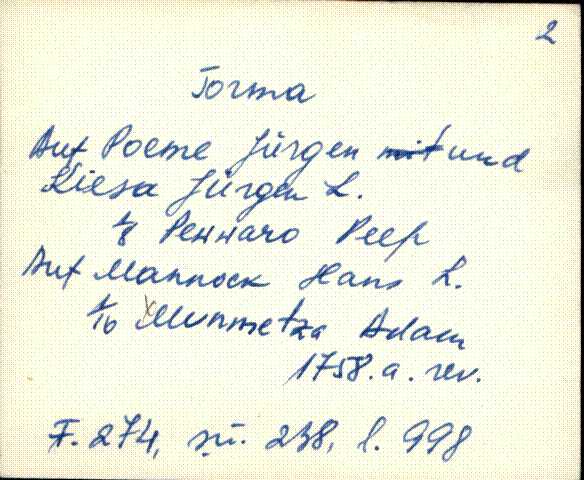 2
Torma
Auf Poeme Jürgen mit und
Kiesa Jürgen L.
1/8 Pennaro Peep
Auf Mannock Hans L.
1/16 Munnietza Adam
1758.a. rev.
F. 274, sü. 238, l. 998